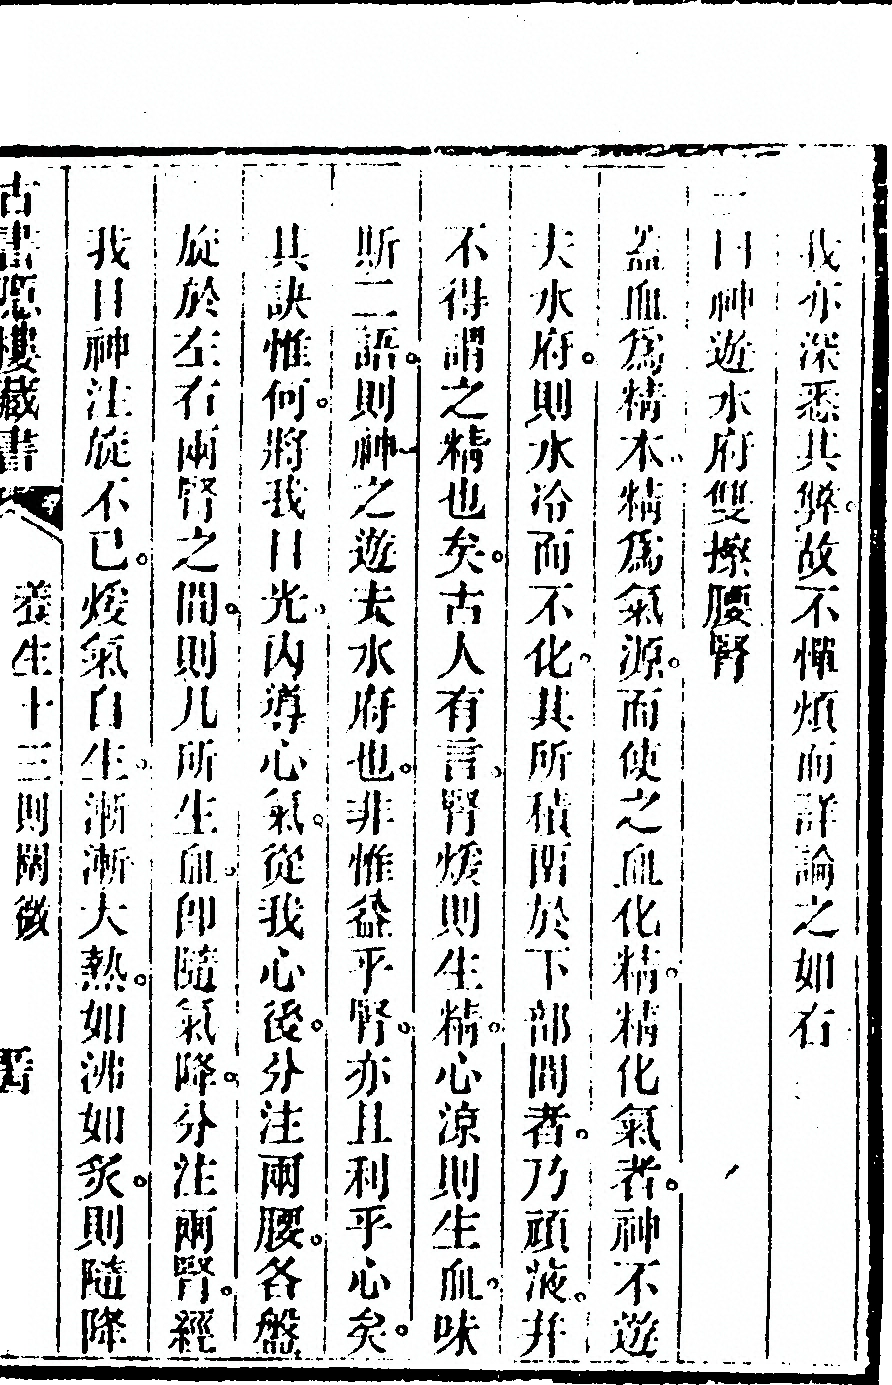 我亦深悉其弊。故不憚煩而詳論之如右
一曰神遊水府雙擦腰腎
蓋血爲精本。精爲氣源。而使之血化精。精化氣者。神不遊
夫水府。則水冷而不化。其所積固於下部間者。乃頑液。幷
不得謂之精也矣。古人有言。腎煖則生精。心涼則生血。味
斯二語。則神之遊夫水府也。非惟益乎腎。亦且利乎心矣。
其訣惟何。將我目光。內導心氣。從我心後。分注兩腰。各盤
旋於左右兩腎之間。則凡所生血。卽隨氣降。分注兩腎。經
我目神注旋不已。煖氣自生。漸漸大熱。如沸如炙。則隨降
古書隱樓藏書
養生十三則闡微